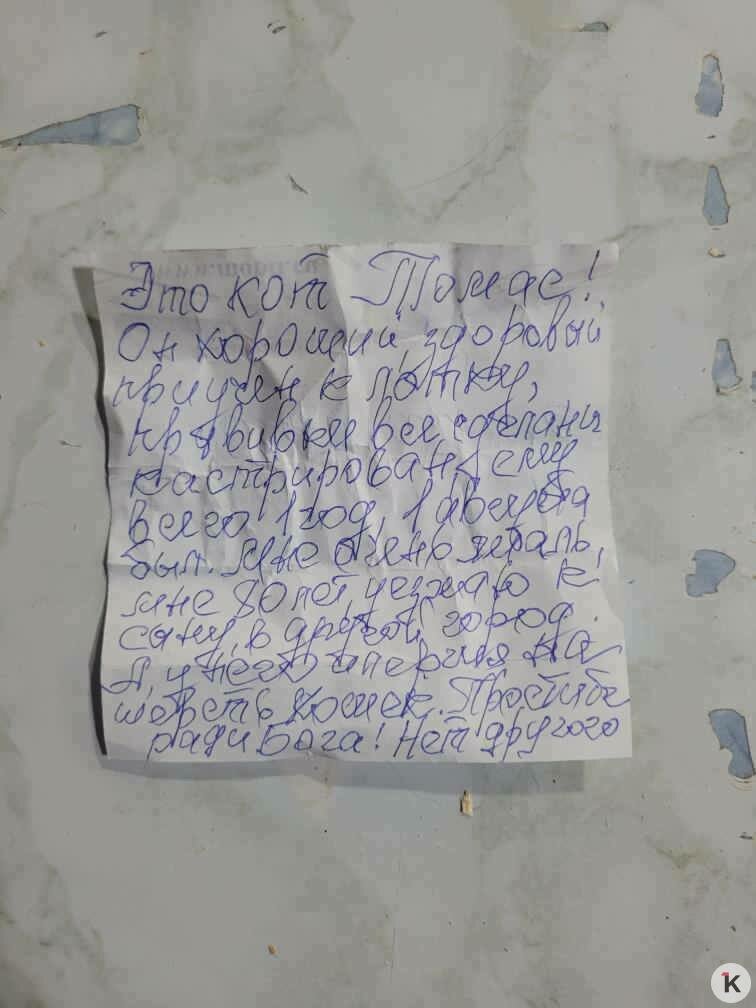 Это кот Томас!
Он хороший здоровый
приучен к лотку,
прививки все сделаны
кастрирован, ему
всего 1 год, 1 августа
был. Мне очень жаль,
мне 80 лет уезжаю к
сыну, в другой город.
А, у него алергия на
шерсть кошек. Простите
ради Бога! Нет другого
K